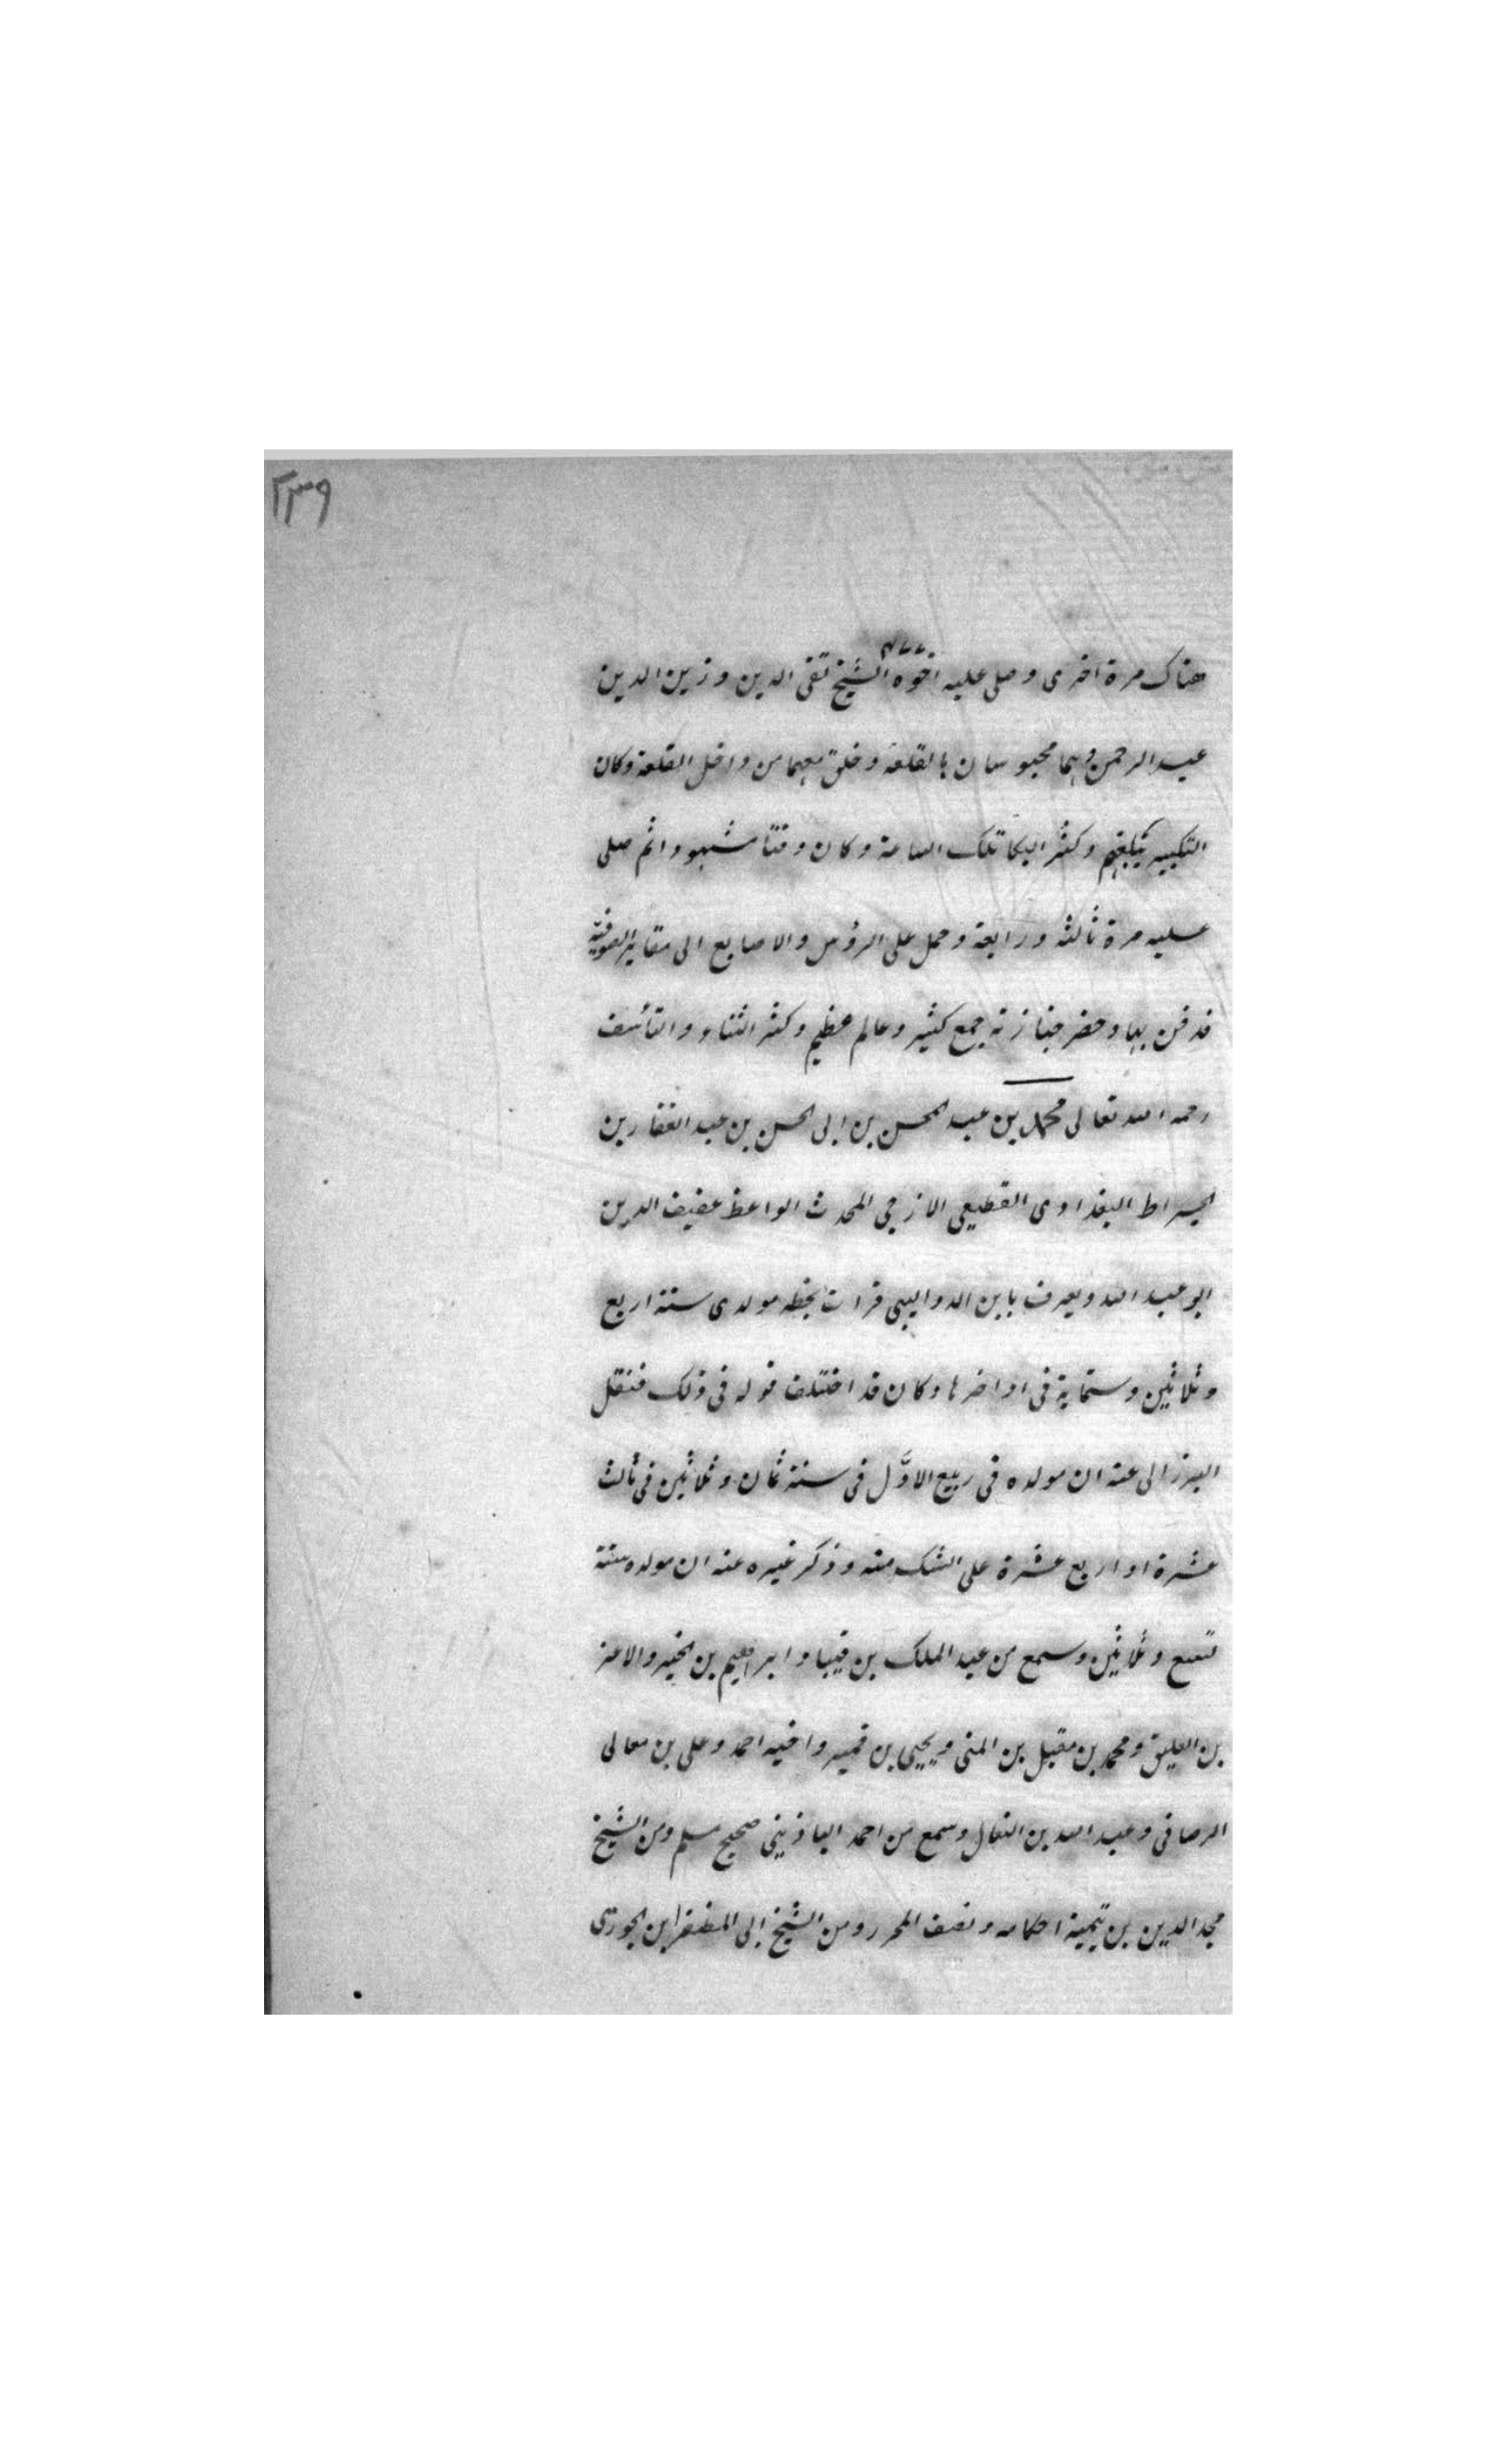 ٢٣٩
هناك مرة اخرى وصلى عليه اخوه الشيخ تقى الدين وزين الدين
عبد الرحمن وهما محبوسان بالقلعة وخلق معهما من داخل القلعة وكان
التكبير يبلغهم وكثر البكا تلك الساعة وكان وقتا مشهودا ثم صلى
عليه مرة ثالثة ورابعة وحمل على الرؤس والاصابع الى مقابر الصوفية
فدفن بها وحضر جنازته جمع كثير وعالم عظيم وكثر الثناء والتأسف
رحمه الله تعالى محمد بن عبد المحسن بن ابى الحسن بن عبد الغفار بن
الخراط البغدادى القطيعى الازجى المحدث الواعظ عفيف الدين
ابو عبد الله ويعرف بابن الدواليبى قرات بخطه مولدى سنة اربع
وثلاثين وستماية فى اواخرها وكان قد اختلف قوله فى ذلك فنقل
البرزالى عنه ان مولده فى ربيع الاوّل فى سنة ثمان وثلاثين فى ثالث
عشرة او اربع عشرة على الشك منه وذكر غيره عنه ان مولده سنة
تسع وثلاثين وسمع من عبد الملك بن قيبا وابراهيم بن الخير والاعز
بن العليق ومحمد بن مقبل بن المنى ويحيى بن قميره واخيه احمد وعلى بن معالى
الرصافى وعبد الله بن النعال وسمع من احمد الباذبينى صحيح مسلم ومن الشيخ
مجد الدين بن تيمية احكامه ونصف المحرر ومن الشيخ ابى المظفر ابن الجوزى